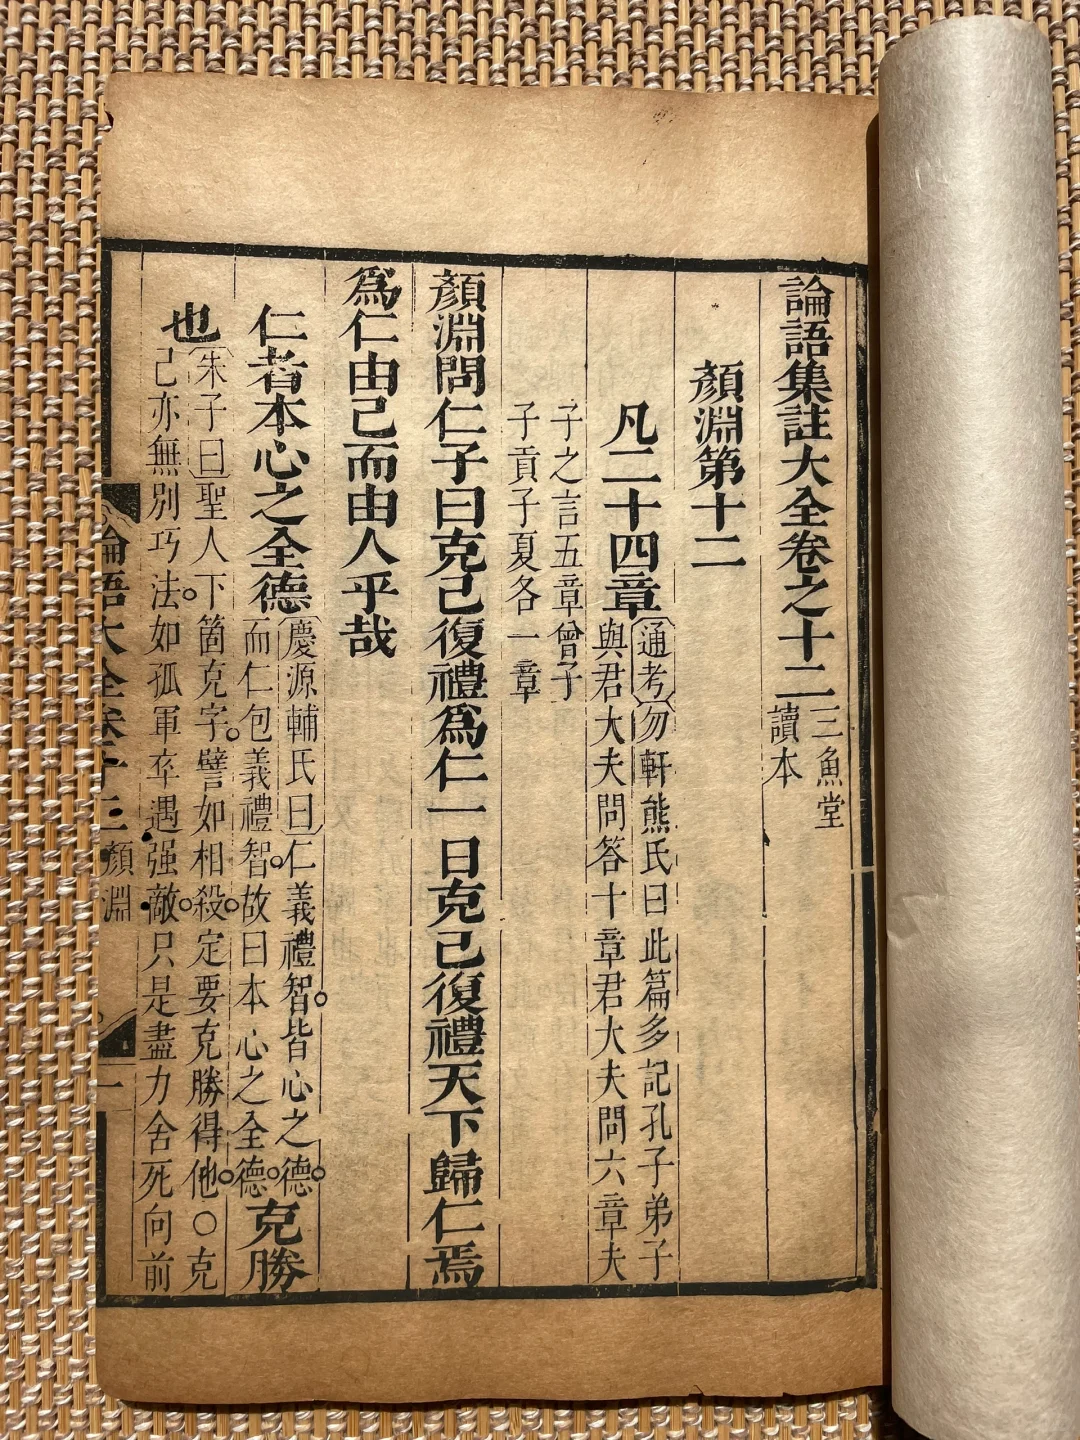 論語集註大全卷之十二
三魚堂
讀本
顏淵第十二
凡二十四章
通考勿軒熊氏曰此篇多記孔子弟子
與君大夫問答十章君大夫問六章夫
子之言五章曾子
子貢子夏各一章
顏淵問仁子曰克己復禮爲仁一日克己復禮天下歸仁焉
爲仁由己而由人乎哉
仁者本心之全德
慶源輔氏曰仁義禮智皆心之德
而仁包義禮智故曰本心之全德
克勝
也
朱子曰聖人下箇克字譬如相殺定要克勝得他○克
己亦無別巧法如孤軍卒遇强敵只是盡力舍死向前
論語大全卷十二 顏淵 一